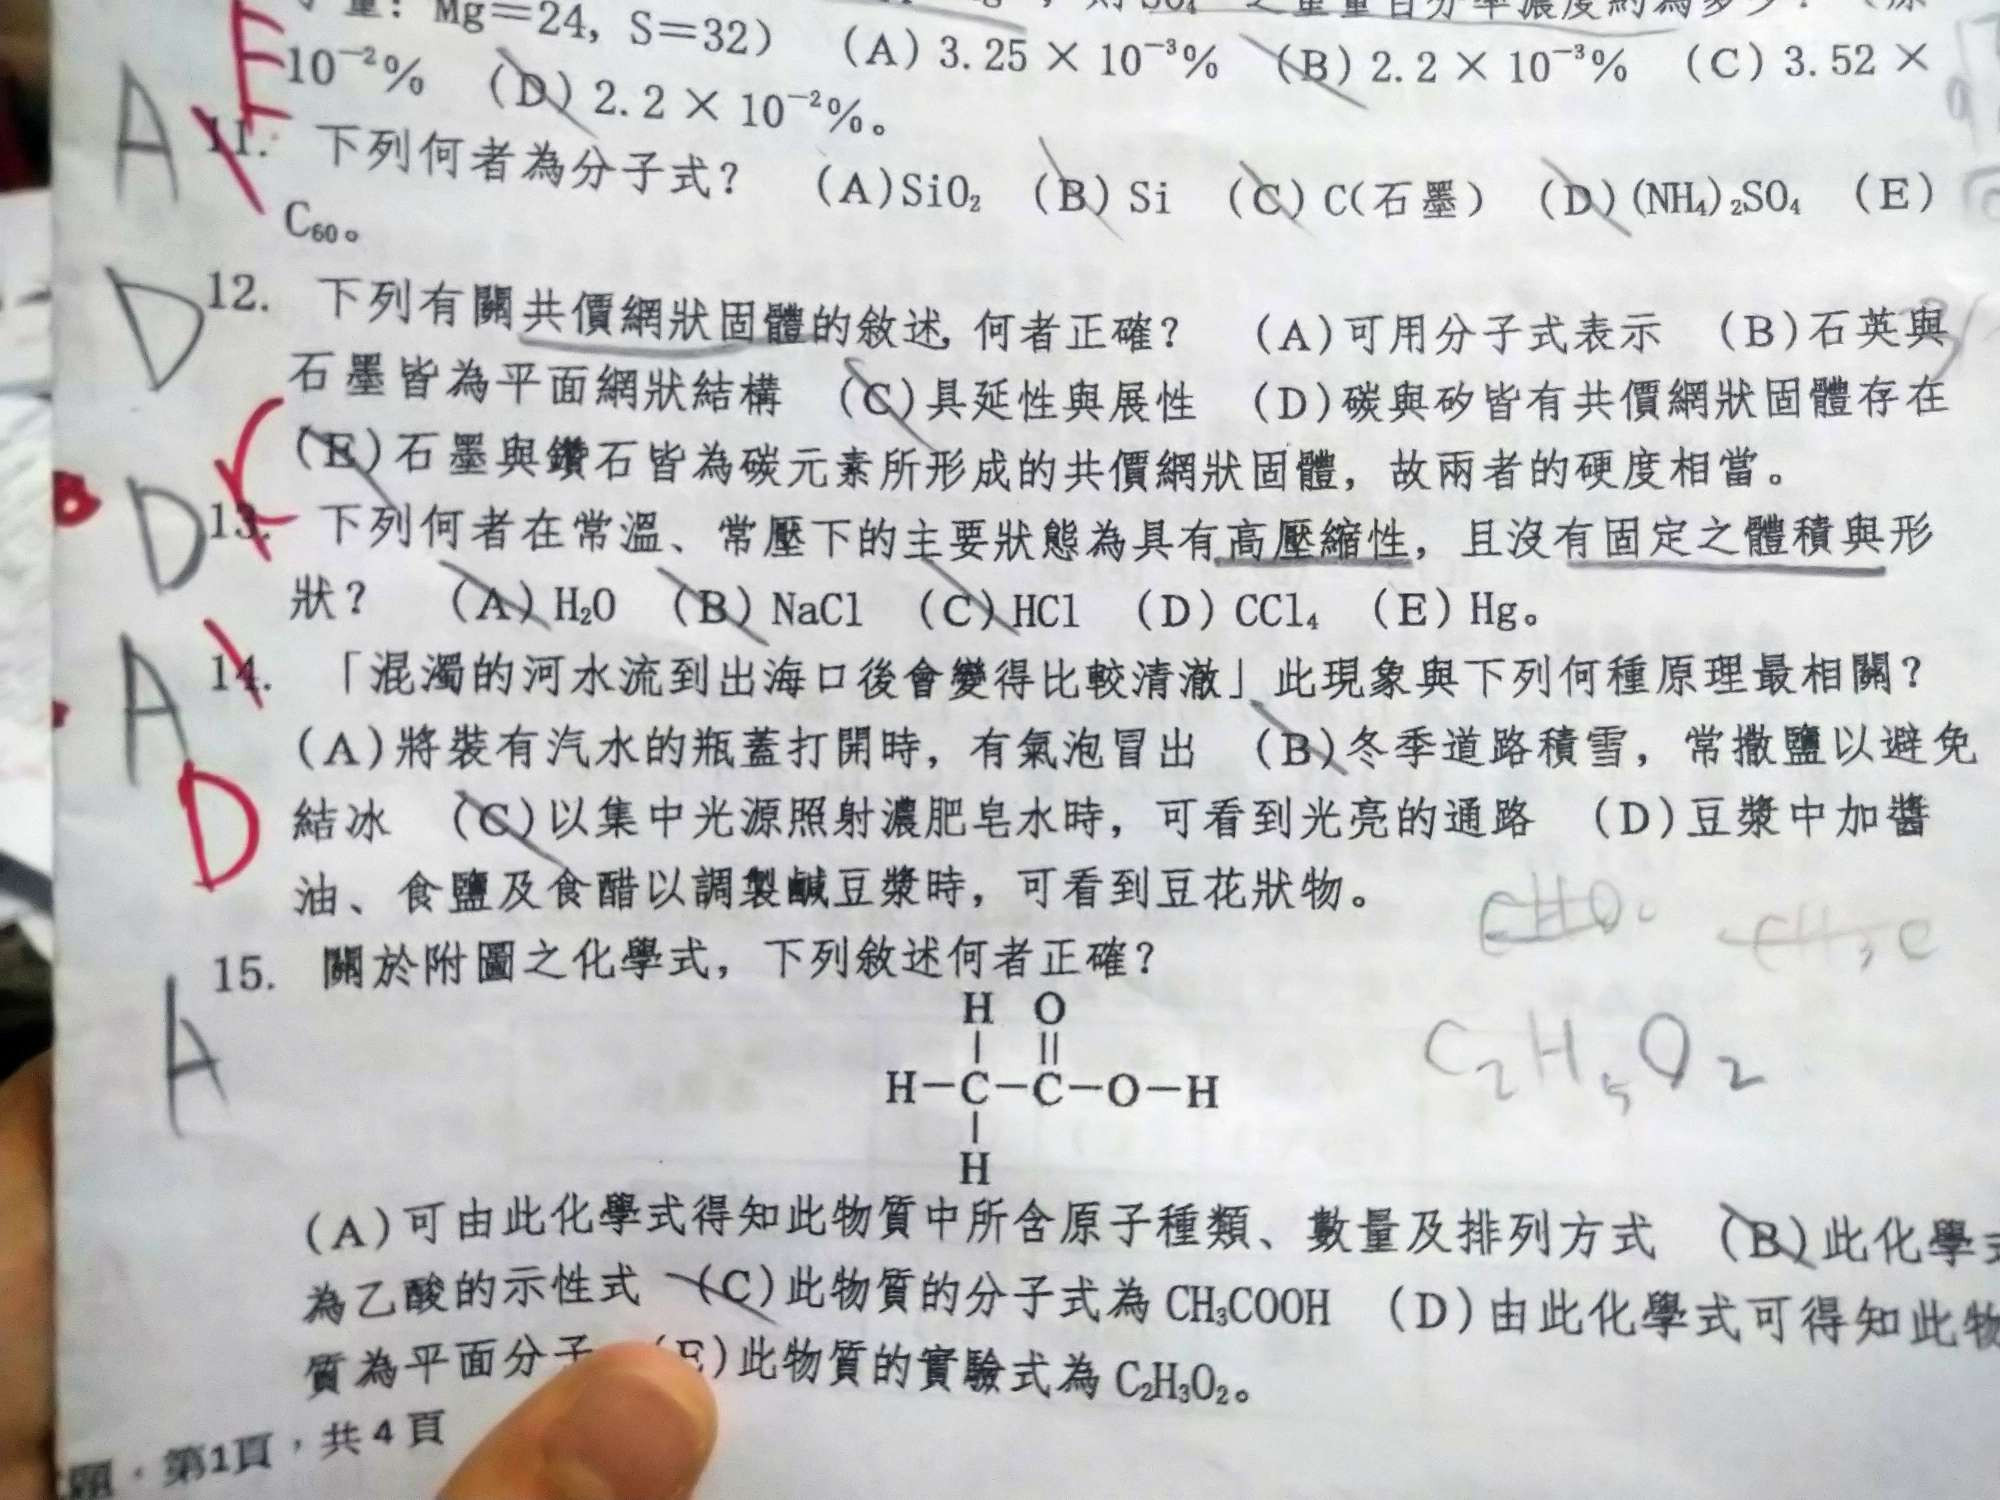 量：Mg＝24, S＝32） (A) 3.25 × 10⁻³% (B) 2.2 × 10⁻³% (C) 3.52 ×
10⁻²% (D) 2.2 × 10⁻²%。
E
A 11. 下列何者為分子式？ (A)SiO₂ (B) Si (C) C(石墨) (D)(NH₄)₂SO₄ (E)
C₆₀。
D 12. 下列有關共價網狀固體的敘述, 何者正確？ (A)可用分子式表示 (B)石英與
石墨皆為平面網狀結構 (C)具延性與展性 (D)碳與矽皆有共價網狀固體存在
(E)石墨與鑽石皆為碳元素所形成的共價網狀固體，故兩者的硬度相當。
C
D 13. 下列何者在常溫、常壓下的主要狀態為具有高壓縮性，且沒有固定之體積與形
狀？ (A) H₂O (B) NaCl (C) HCl (D) CCl₄ (E) Hg。
A 14. 「混濁的河水流到出海口後會變得比較清澈」此現象與下列何種原理最相關？
(A)將裝有汽水的瓶蓋打開時，有氣泡冒出 (B)冬季道路積雪，常撒鹽以避免
D 結冰 (C)以集中光源照射濃肥皂水時，可看到光亮的通路 (D)豆漿中加醬
油、食鹽及食醋以調製鹹豆漿時，可看到豆花狀物。
A 15. 關於附圖之化學式，下列敘述何者正確？
H O
H－C－C－O－H
H
C₂H₅O₂
(A)可由此化學式得知此物質中所含原子種類、數量及排列方式 (B)此化學式
為乙酸的示性式 (C)此物質的分子式為 CH₃COOH (D)由此化學式可得知此物
質為平面分子 (E)此物質的實驗式為 C₂H₃O₂。
題，第1頁，共4頁